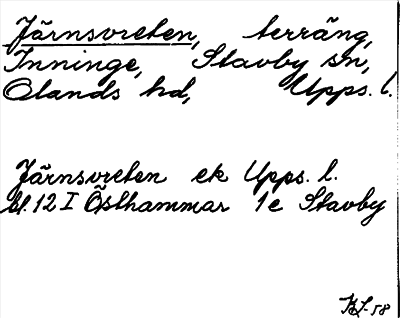 Järnsvreten, terräng,
Inninge, Stavby sn,
Olands hd, Upps. l.
Järnsvreten ek Upps. l.
bl. 12 I Östhammar 1e Stavby